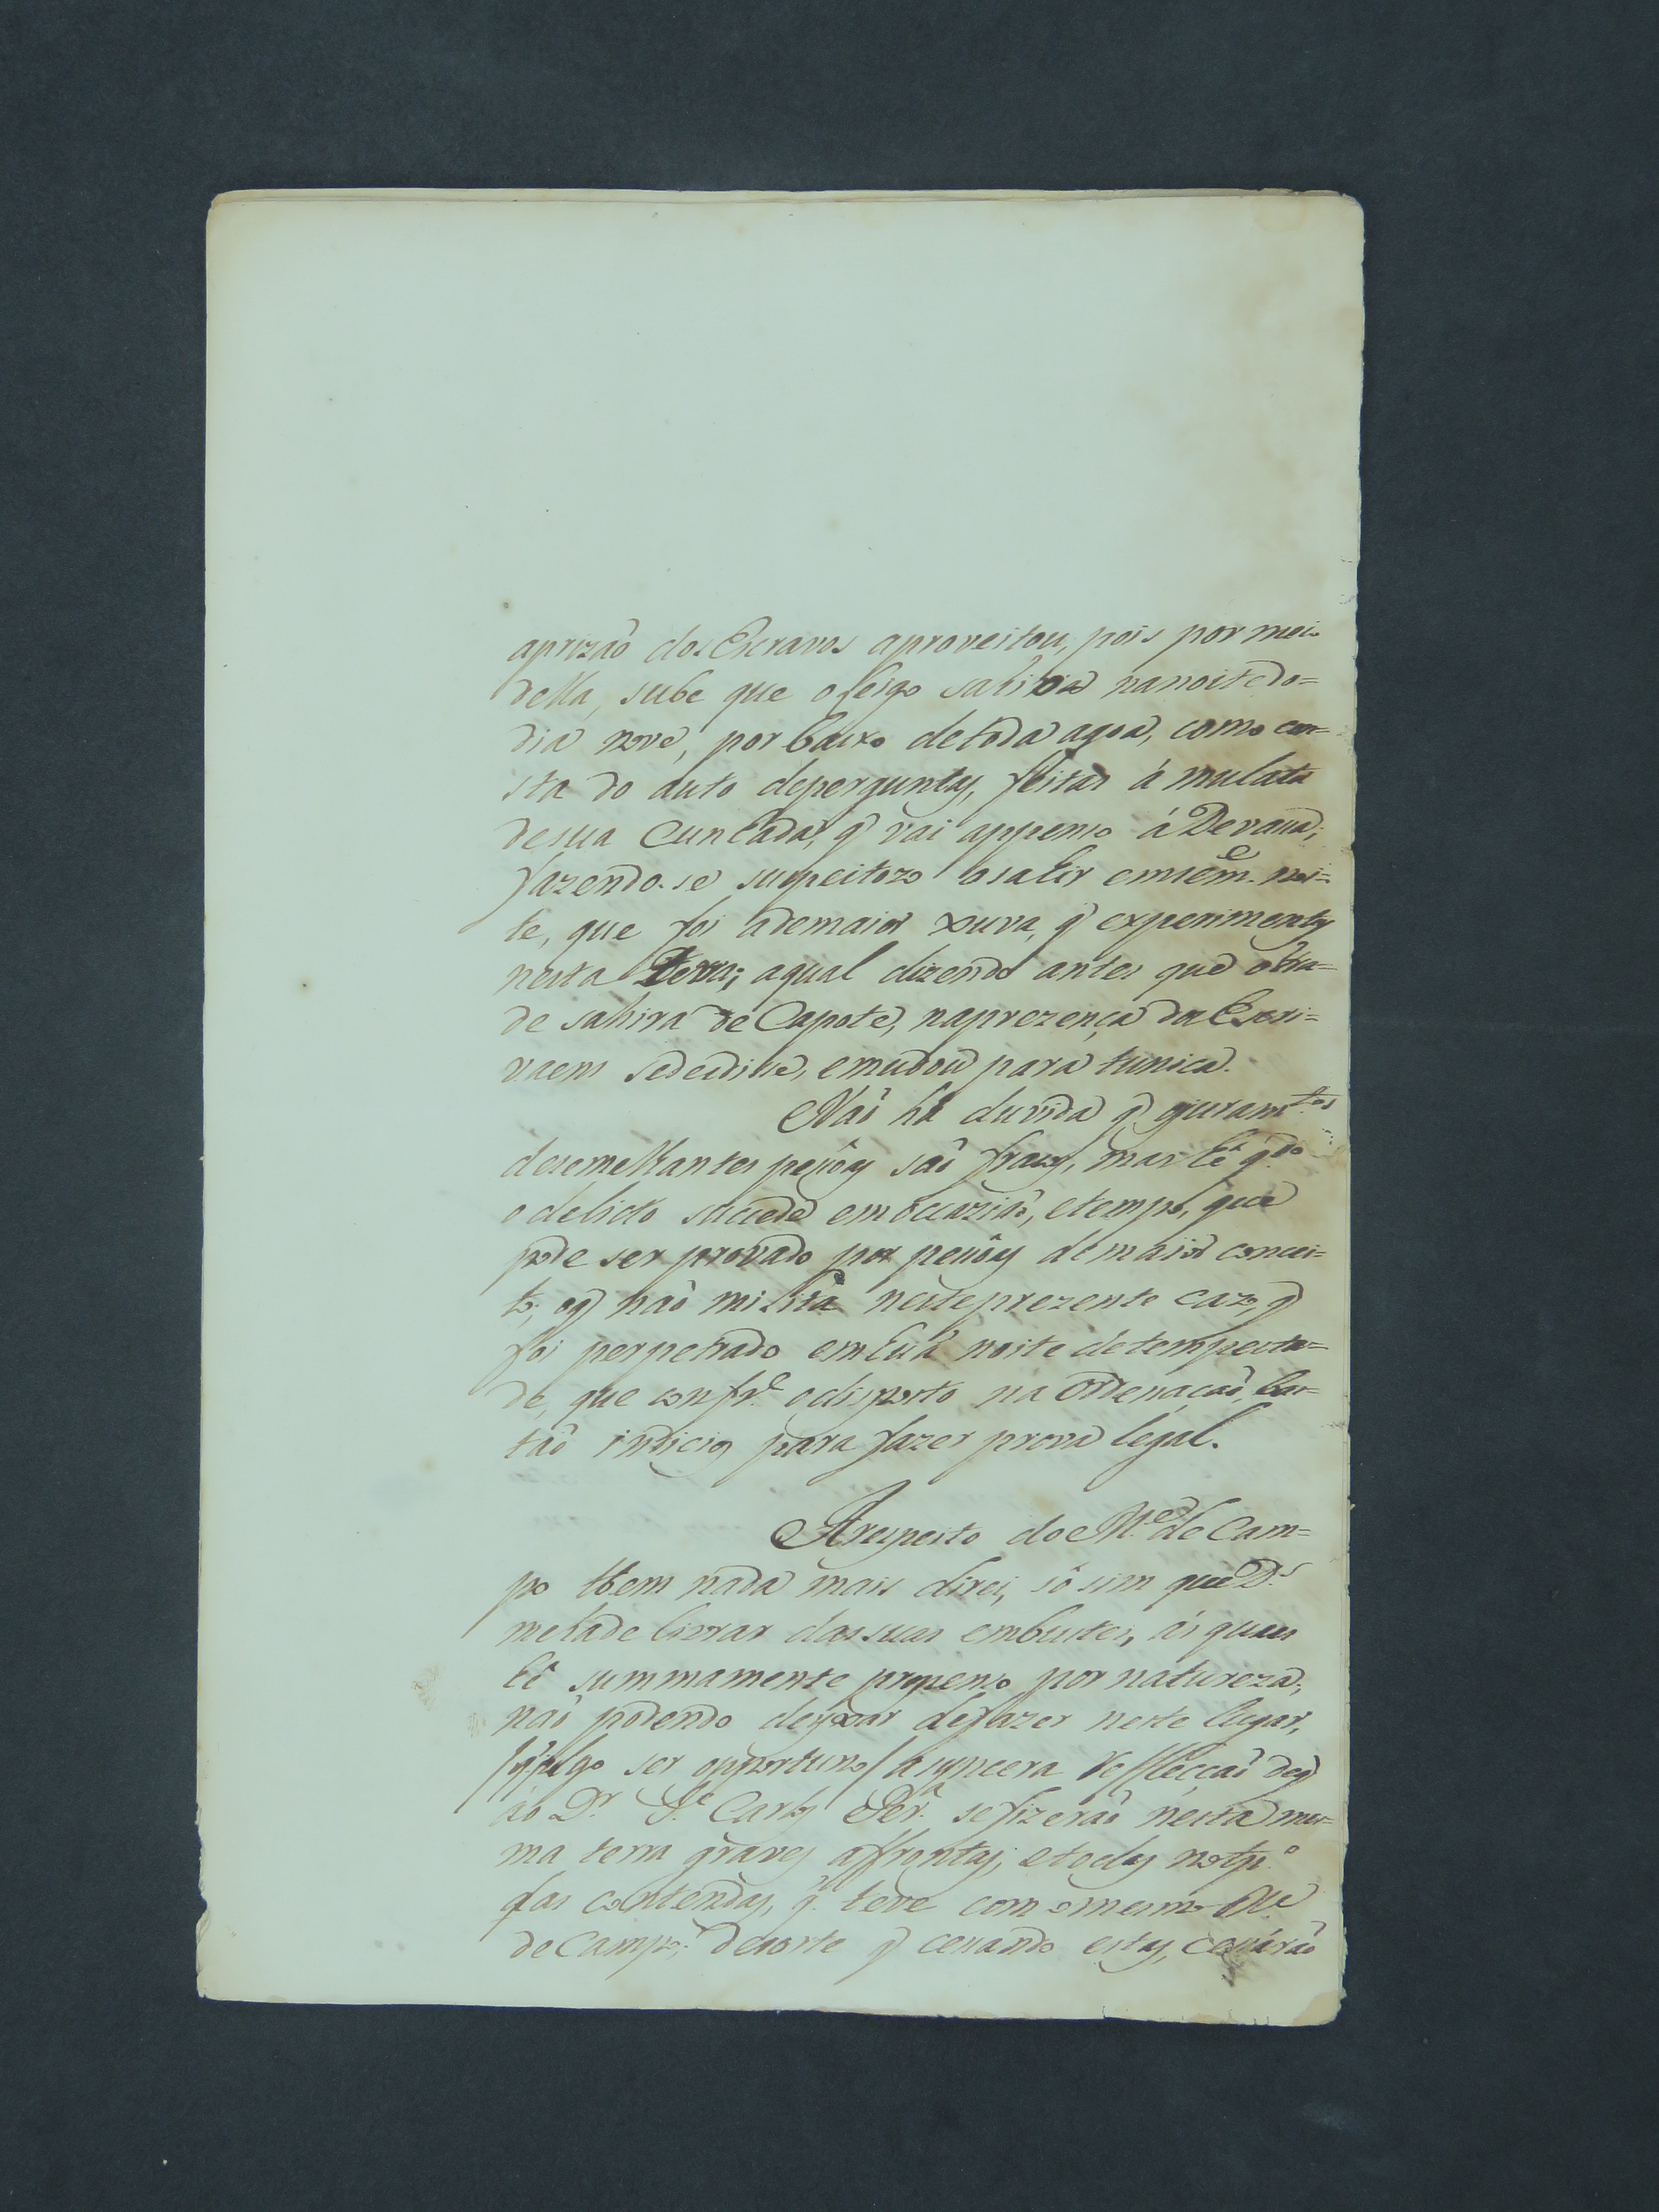 aprizão dos Escravos aproveitou, pois por meio
della, sube que o leigo sahira na noite do=
dia nove, por baixo de toda agoa, como con=
sta do auto de perguntas, feitas á mulata
de sua Cunhada, q̃ vai appenso á Devaça;
fazendo-se suspeitozo o sahir em sem.e noi=
te, que foi a de maior xuva, q̃ experimentey
nesta terra; a qual dizendo antes que o Fra=
de sahira de Capote, na prezença dos Escri=
vaens se dedisse, e mudou para tunica.
Não há duvida q̃ os juram.tos
de semelhantes pessôas são fracos, mas hé q.do
o delicto sucede em occazião, e tempo, que
pode ser provado por pessôas de maior concei=
to; o q̃ não milita neste prezente cazo, q̃
foi perpetrado em huã noite de tempesta=
de, que conf.e o disposto na Ordenação, bas=
tão indicios para fazer prova legal.
A respeito do M.e de Cam=
po tbem nada mais direi, só sim que D.s
me hade livrar das suas embustes, ás quaes
hé summamente propenso por natureza;
não podendo deyxar de fazer neste lugar,
(q̃ julgo ser opportuno) a syncera refflecção de q̃
ao D.r J.e Carlos Per.a se fizerão nesta mes=
ma terra graves affrontas, e todas no tp.o
das contendas, q̃ teve com o mesmo M.e
de Campo; de sorte q̃ cessando estas, cessárão